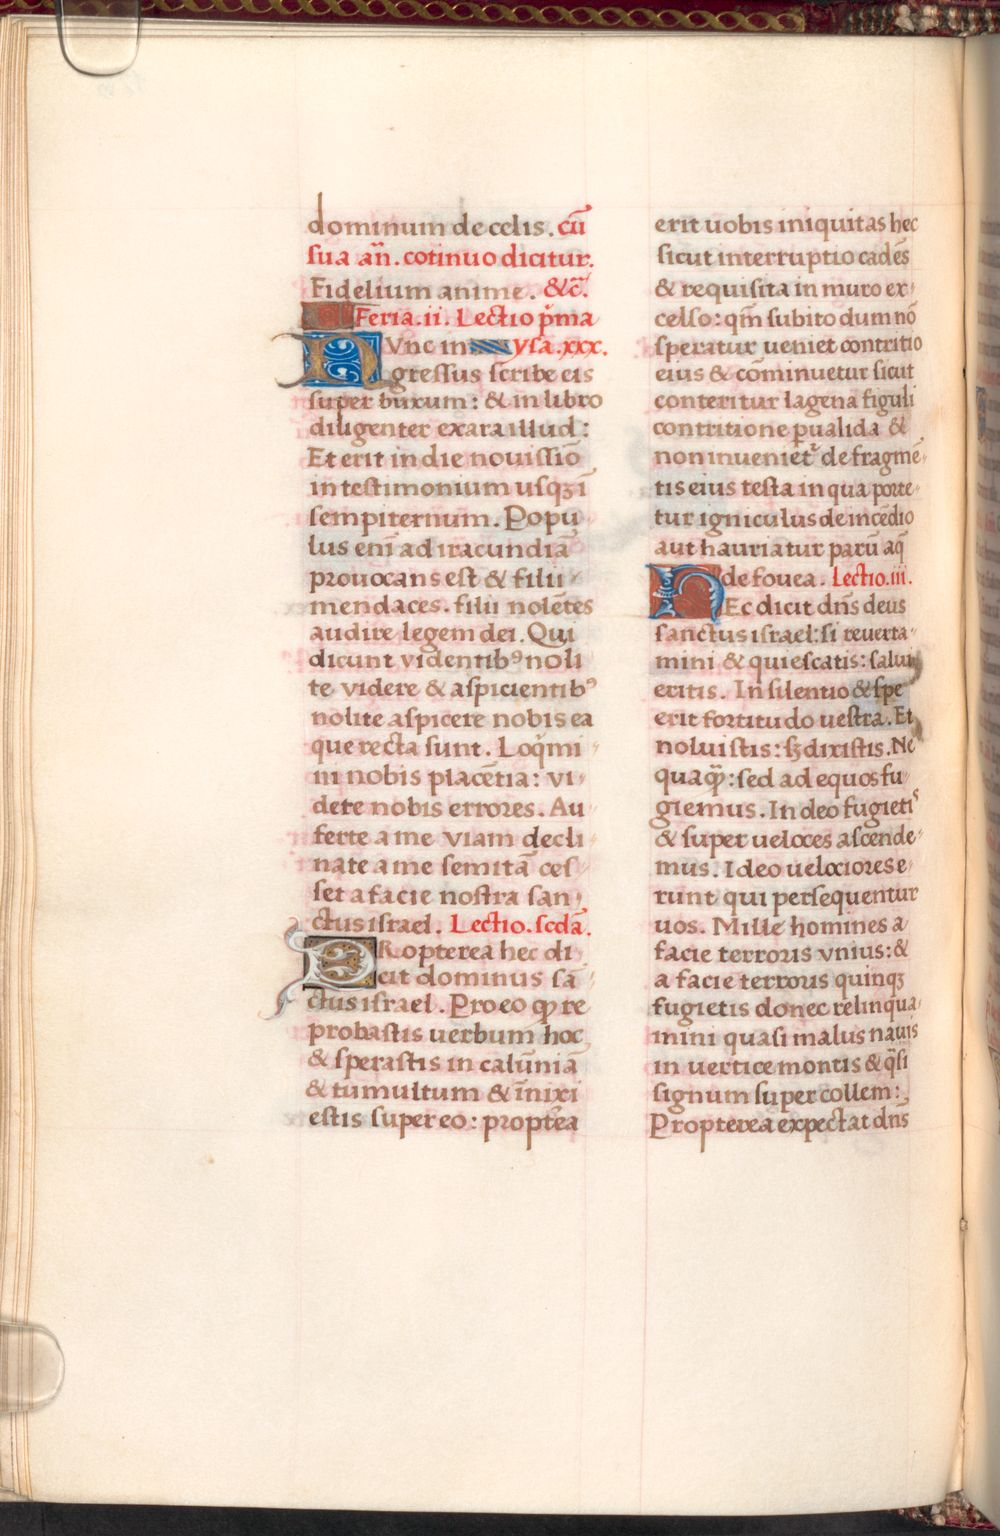 dominum de celis. cū
sua an̄. cōtinuo dicitur.
Fidelium anime. &c̄.
Feria.ii. Lectio p̄ma
NVnc in ysa.xxx.
gressus scribe eis
super buxum: & in libro
diligenter exara illud:
Et erit in die novissīo
in testimonium usqꝫ ī
sempiternum. Popu
lus enī ad iracundiā
provocans est & filii
mendaces. filii nolētes
audire legem dei. Qui
dicunt videntibꝰ noli
te videre & aspicientibꝰ
nolite aspicere nobis ea
que recta sunt. Loq̄mi
ni nobis placētia: vi
dete nobis errores. Au
ferte a me viam decli
nate a me semitā ces
set a facie nostra san
ctus israel. Lectio.scdā.
PRopterea hec di
cit dominus sā
ctus israel. Pro eo qꝫ re
probastis uerbum hoc
& sperastis in calūniā
& tumultum & īnixi
estis super eo: propt̄ea
erit uobis iniquitas hec
sicut interruptio cadēs
& requisita in muro ex
celso: qm̄ subito dum nō
speratur ueniet contritio
eius & cōminuetur sicut
conteritur lagena figuli
contritione p̱ualida &
non inueniet᷑ de fragmē
tis eius testa in qua porte
tur igniculus de incēdio
aut hauriatur parū aq̄
de fouea. Lectio.iii.
HEc dicit dn̄s deus
sanctus israel: si reuerta
mini & quiescatis: salui
eritis. In silentio & spe
erit fortitudo uestra. Et
noluistis: sꝫ dixistis. Ne
quaqꝫ̄: sed ad equos fu
giemus. In deo fugietis
& super ueloces ascende
mus. Ideo uelociores e
runt qui persequentur
uos. Mille homines a
facie terroris vnius: &
a facie terroris quinqꝫ
fugietis donec relinqua
mini quasi malus nauis
in uertice montis & q̄si
signum super collem:
Propterea expectat dn̄s